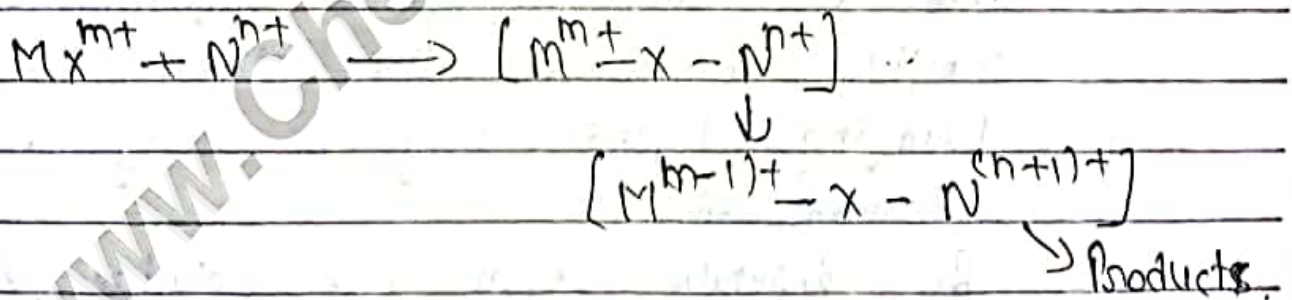 Mx^{m+} + N^{n+} → [M^{m+} - x - N^{n+}]
↓
[M^{(m-1)+} - x - N^{(n+1)+}]
↘ Products.
www.Che